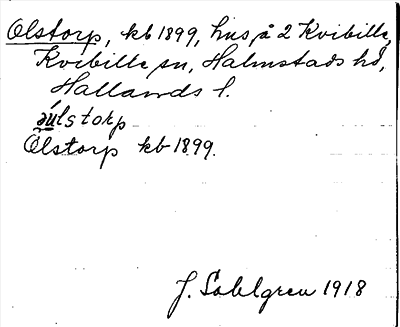 Olstorp, kb 1899, hus å 2 Kvibille,
Kvibille sn, Halmstads hd,
Hallands l.
Olstorp kb 1899.
J. Sahlgren 1918